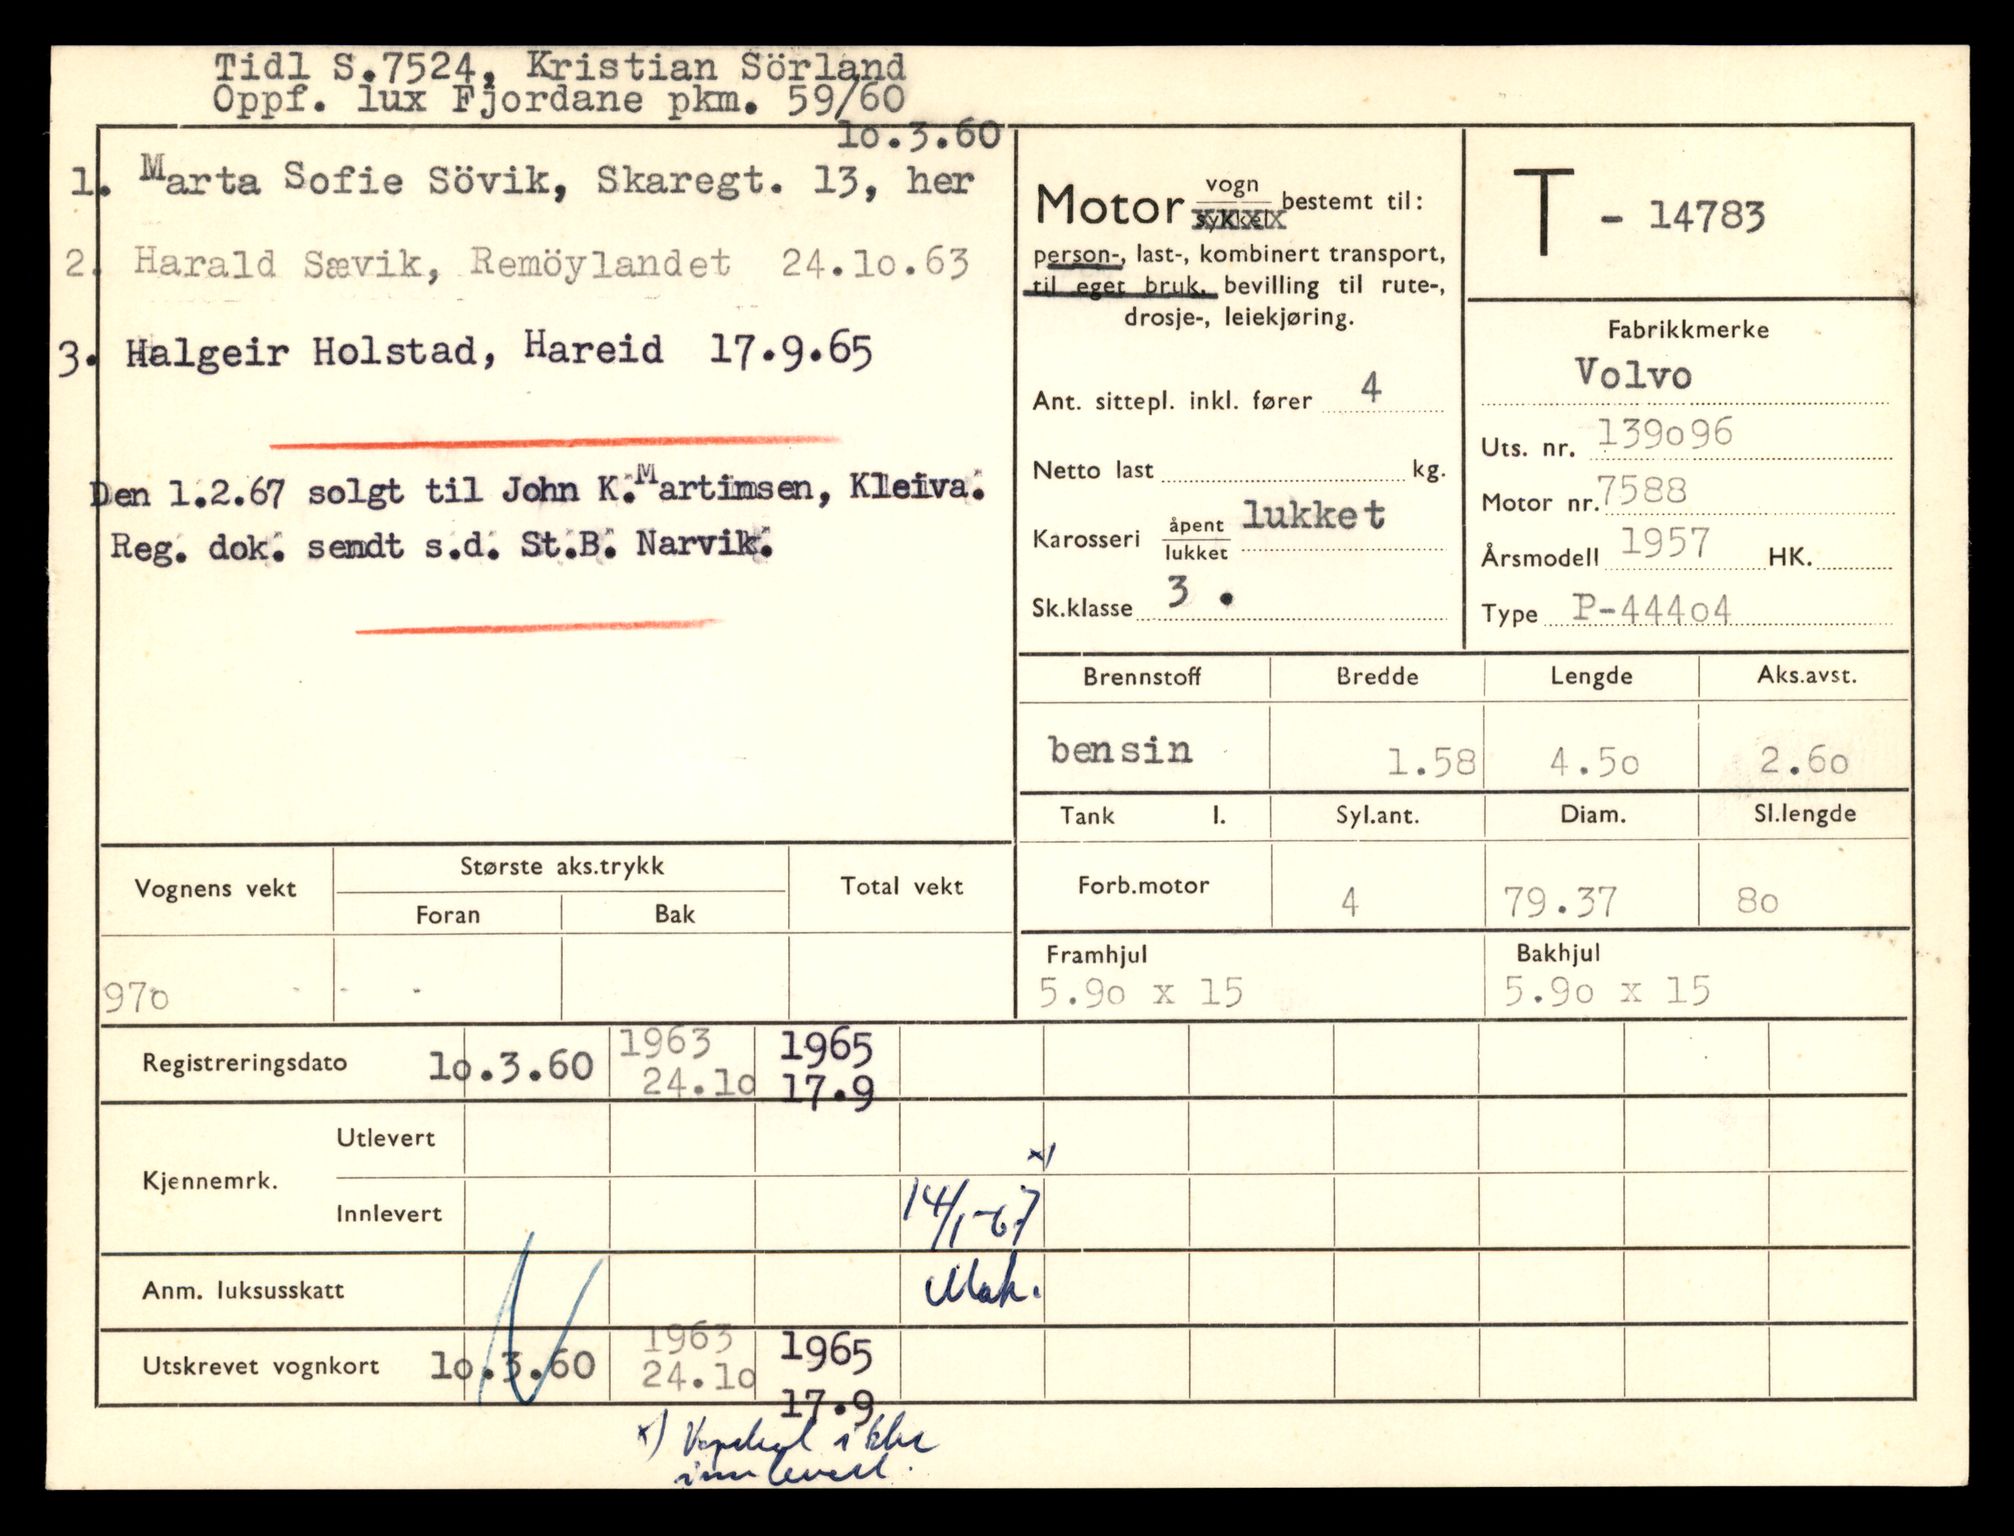 Tidl S.7524, Kristian Sörland
Oppf. lux Fjordane pkm. 59/60
10.3.60
1. Marta Sofie Sövik, Skaregt. 13, her
2. Harald Sævik, Remöylandet 24.10.63
3. Halgeir Holstad, Hareid 17.9.65
Den 1.2.67 solgt til John K. Martimsen, Kleiva.
Reg. dok. semdt s.d. St.B. Narvik.
Motor vogn sykkel bestemt til:
person-, last-, kombinert transport,
til eget bruk, bevilling til rute-,
drosje-, leiekjøring.
Ant. sittepl. inkl. fører 4
Netto last kg.
Karosseri åpent lukket lukket
Sk.klasse 3.
T - 14783
Fabrikkmerke
Volvo
Uts. nr. 139o96
Motor nr. 7588
Årsmodell 1957 HK.
Type P-444o4
Brennstoff Bredde Lengde Aks.avst.
bensin 1.58 4.5o 2.6o
Tank l. Syl.ant. Diam. Sl.lengde
Forb.motor 4 79.37 8o
Framhjul Bakhjul
5.9o x 15 5.9o x 15
Vognens vekt Største aks.trykk Total vekt
Foran Bak
97o
Registreringsdato 1o.3.60 1963 24.1o 1965 17.9
Kjennemrk. Utlevert x)
Innlevert 14/1-67
Anm. luksusskatt Mak.
Utskrevet vognkort 1o.3.60 1963 24.1o 1965 17.9
x) ikke
innlevert.